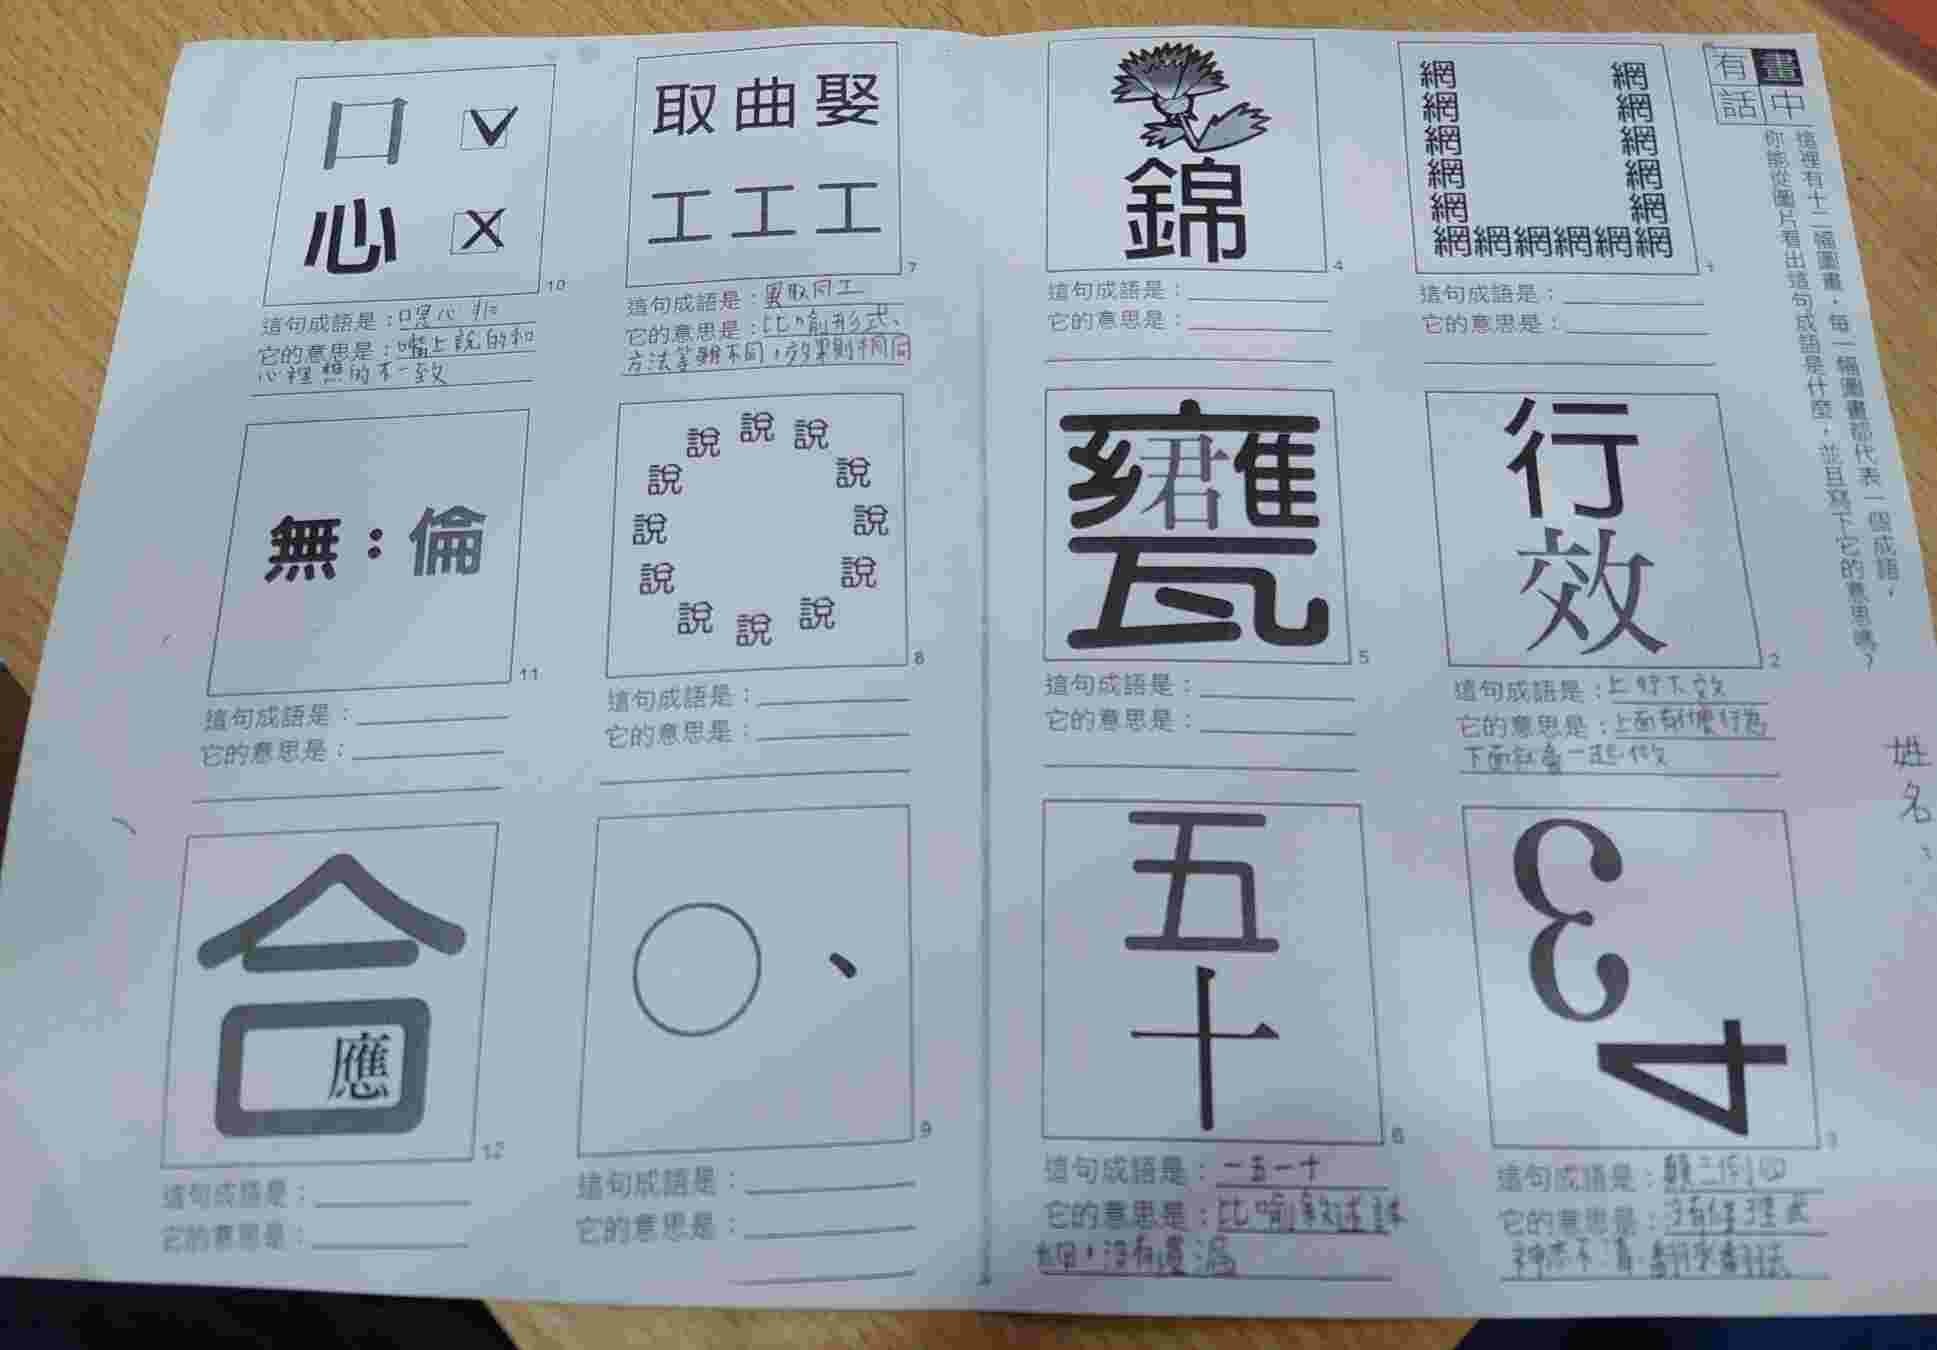 畫中有話
這裡有十二幅圖畫，每一幅圖畫都代表一個成語，
你能從圖片看出這句成語是什麼，並且寫下它的意思嗎？
姓名：
網 網
網 網
網 網
網 網
網 網
網網網網網網
1
這句成語是：
它的意思是：
行
效
2
這句成語是：上行下效
它的意思是：上面有什麼行為
下面就會一起做
3
4
3
這句成語是：顛三倒四
它的意思是：
神志不清
錦
4
這句成語是：
它的意思是：
甕
君
5
這句成語是：
它的意思是：
五
十
6
這句成語是：一五一十
它的意思是：比喻敘述詳
細，沒有遺漏
取曲娶
工工工
7
這句成語是：異取同工
它的意思是：比喻形式、
方法等雖不同，效果則相同
說 說 說
說 說
說 說
說 說
說 說 說
8
這句成語是：
它的意思是：
、
9
這句成語是：
它的意思是：
口
心
10
這句成語是：口是心非
它的意思是：嘴上說的和
心裡想的不一致
無：倫
11
這句成語是：
它的意思是：
合
應
12
這句成語是：
它的意思是：